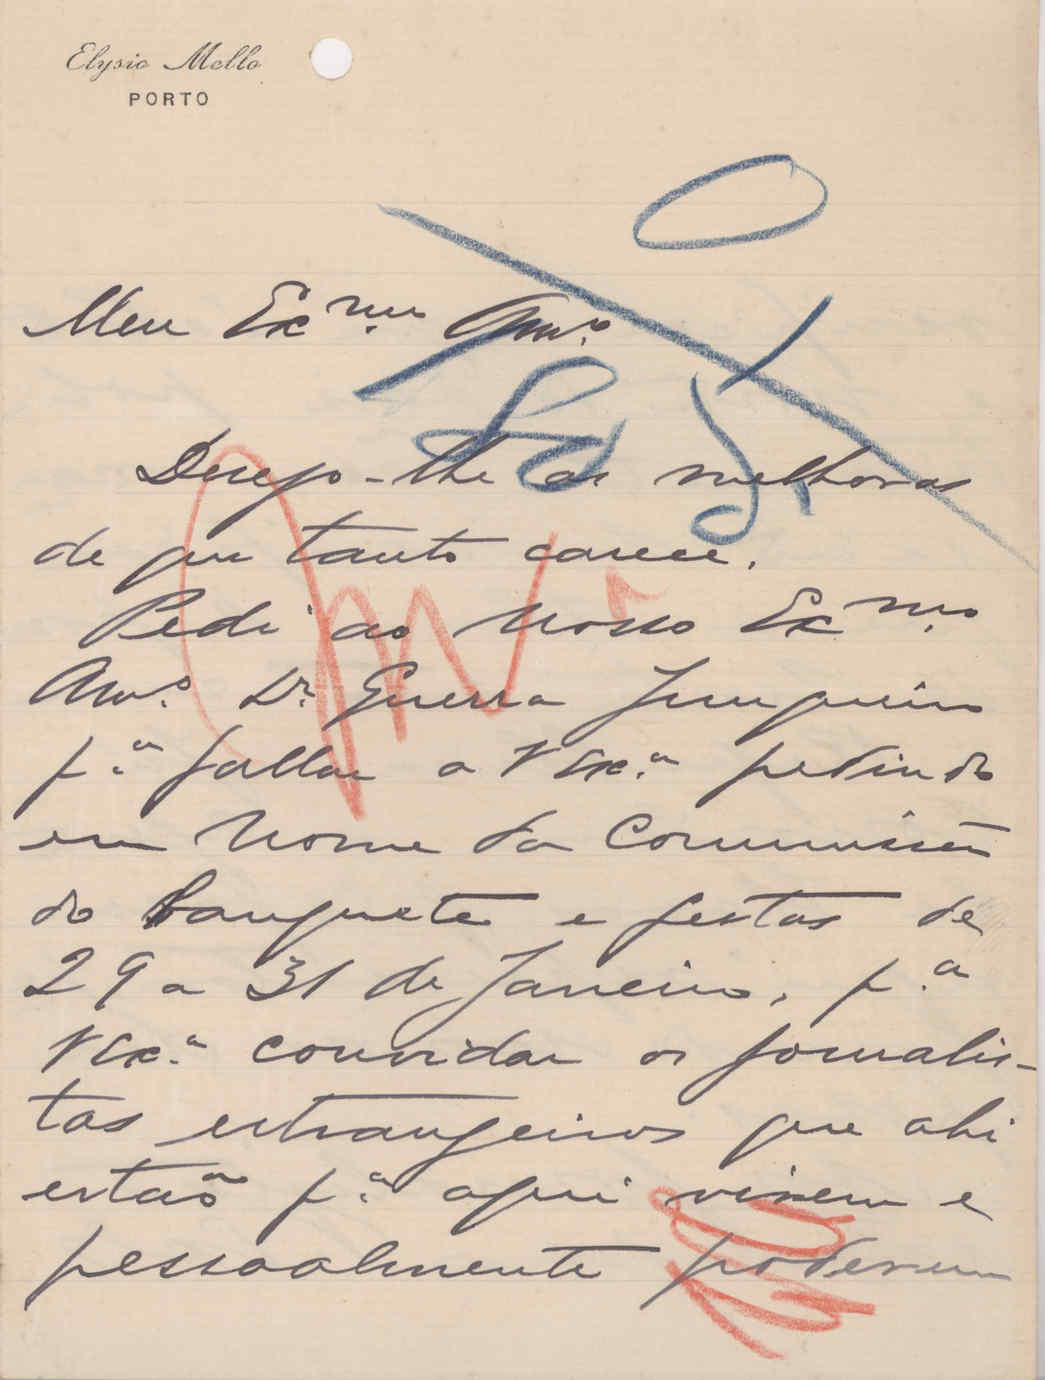 Elysio Mello
PORTO
Meu Ex.mo Am.o
Desejo-lhe as melhoras
de que tanto carece.
Pedi ao Nosso Ex.mo
Am.o Dr. Guerra Junqueiro
p.a fallar a V Ex.a pedindo
em Nome da Commissão
do banquete e festas de
29 a 31 de Janeiro, p.a
V Ex.a convidar os jornalis-
tas estrangeiros que ahi
estão p.a aqui virem e
pessoalmente poderem